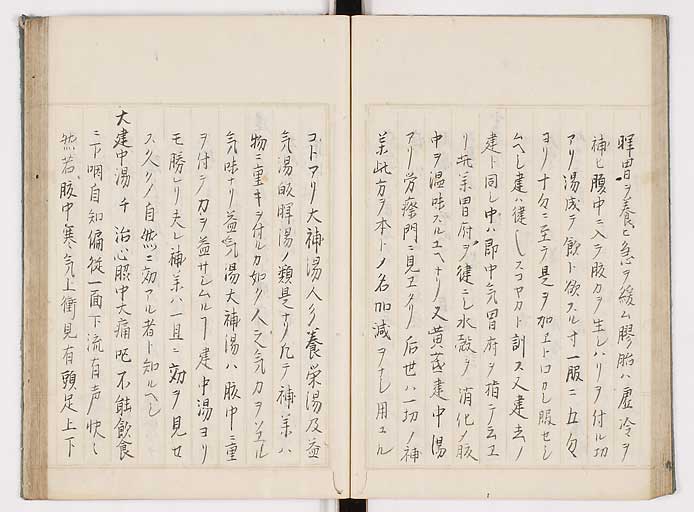 暉胃ヲ養ヒ急ヲ緩ム膠飴ハ虚冷ヲ
補ヒ腹中ニ入テ肢カヲ生シハリヲ付ル功
アリ湯成テ飲ト欲スル寸一服ニ五匁
ヨリ十匁ニ至テ是ヲ加エトロカシ服セシ
ムヘシ建ハ健シスコヤカト訓ス又建立ノ
建ト同シ中ハ即中気胃府ヲ指テ云エ
リ此薬胃府ヲ健ニシ水穀ヲ消化ノ肢
中ヲ温味スルユヘナリ又黄芪建中湯
アリ労瘵門ニ見エタリ后世ハ一切ノ補
薬此方ヲ本トノ名加減ヲナシ用ユル
コトアリ大補湯人参養栄湯及益
気湯皈暉湯ノ類是ナリ凡テ補薬ハ
物ニ重キヲ付ルカ如ク人之気力ヲソユル
気味ナリ益気湯大補湯ハ肢中ニ重
ヲ付テ力ヲ益サシムルヿ建中湯ヨリ
モ勝レリ夫レ補薬ハ一旦ニ効ヲ見セ
ス久クノ自然ニ効アル者ト知ルヘシ
大建中湯千治心胸中大痛呕不能飲食
三下咽自知偏從一面下流有声快々
然若肢中寒気上衝見有頭足上下